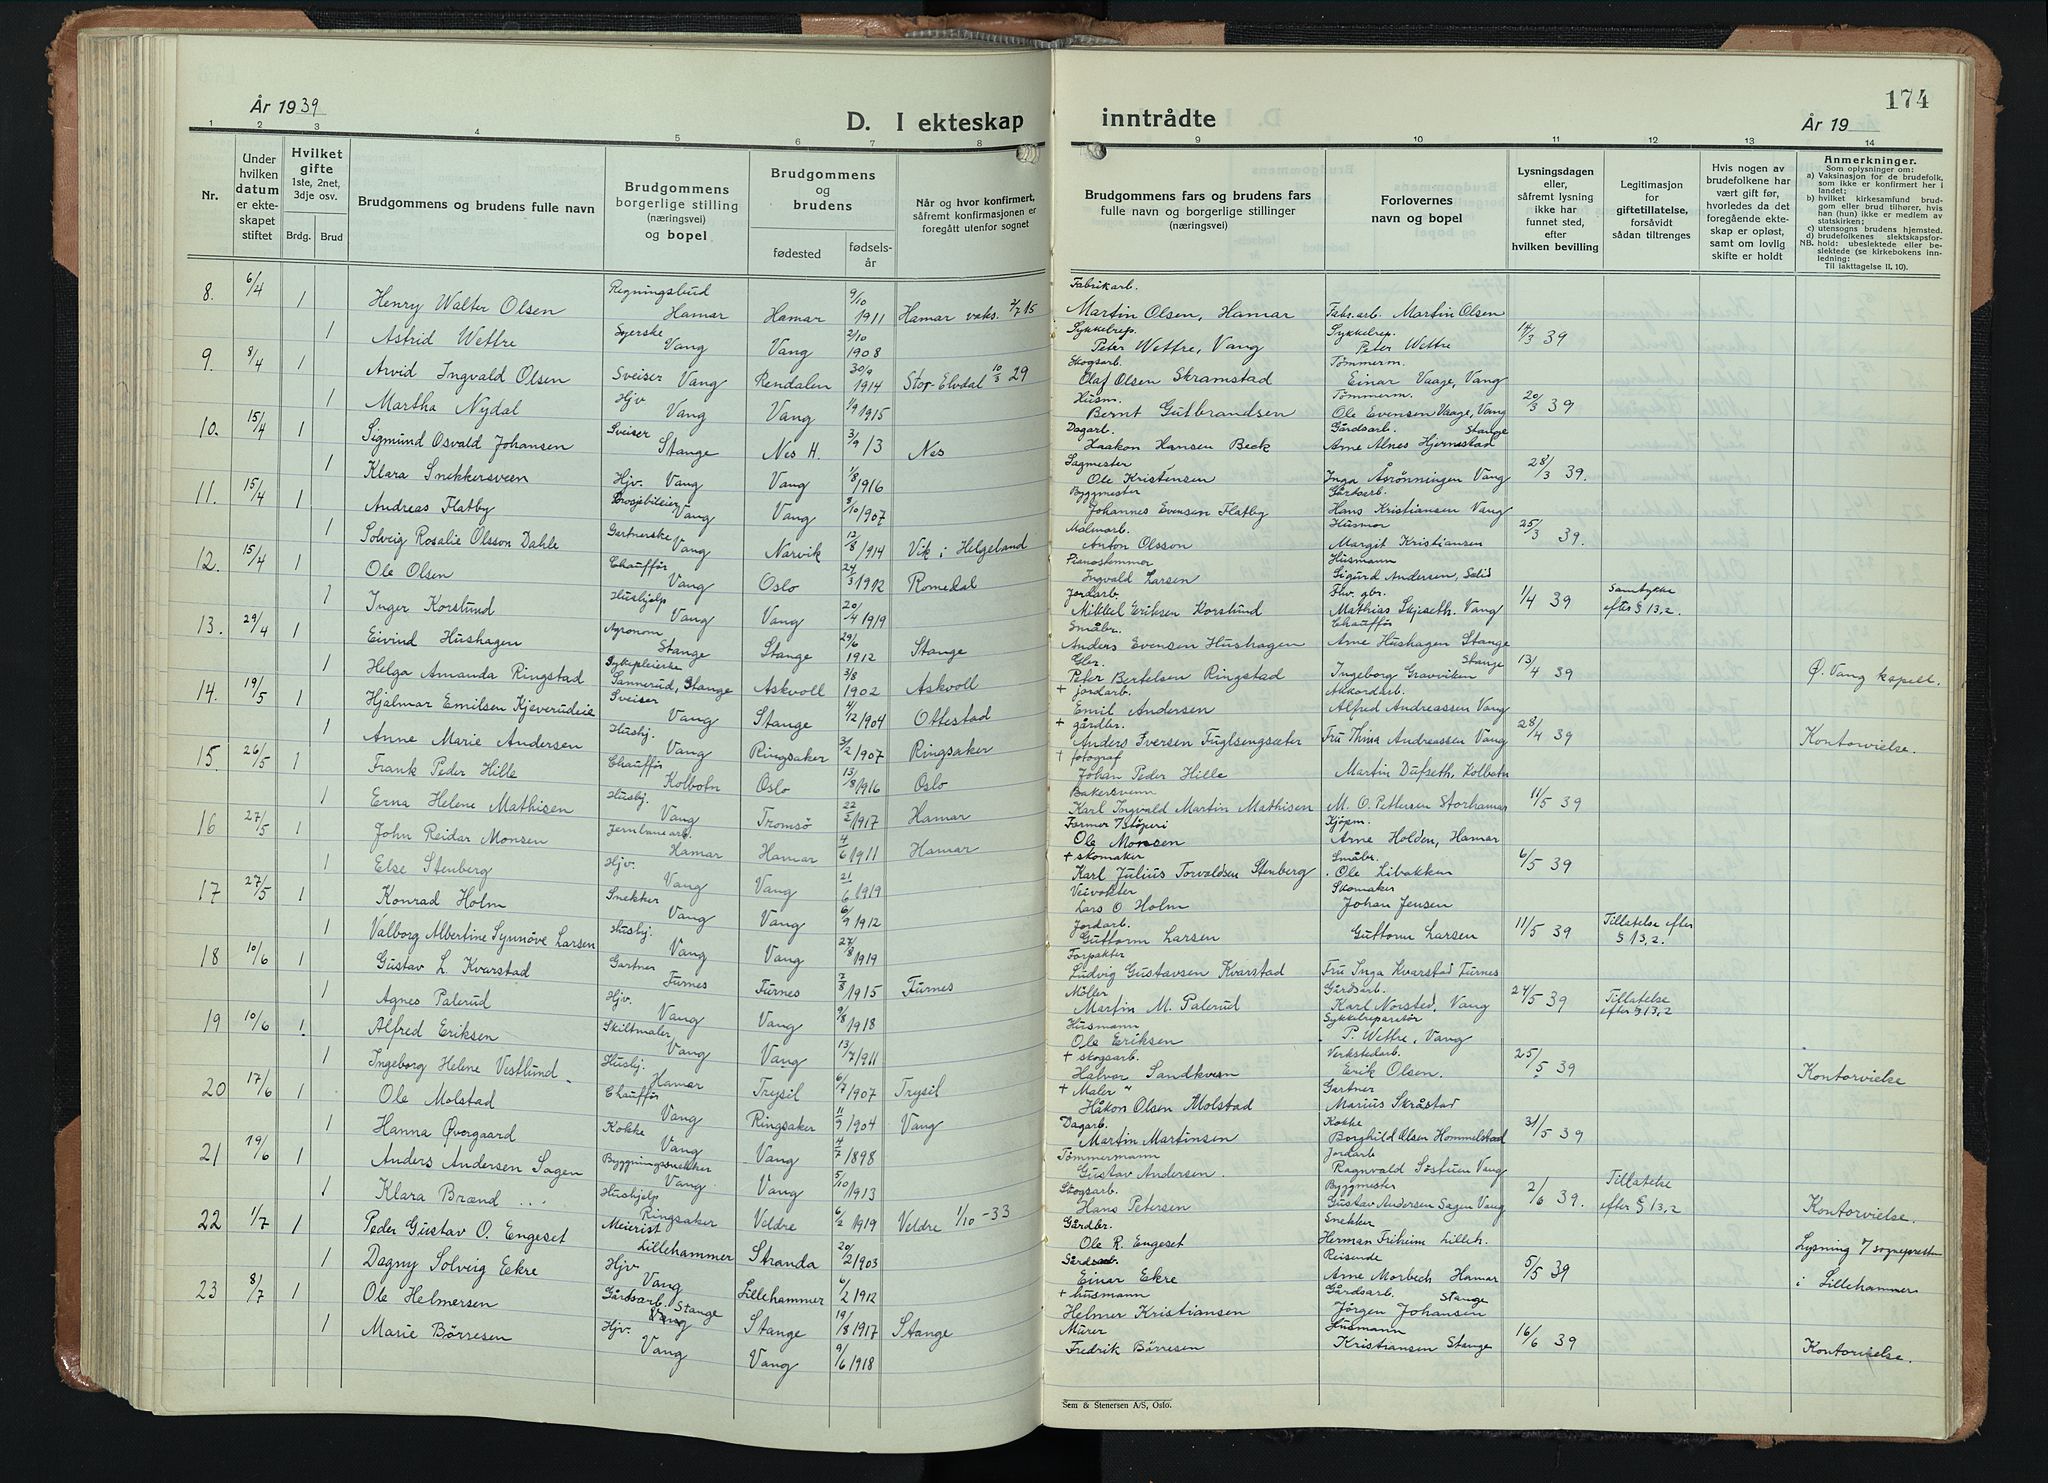 År 1939
D. I ekteskap
1 2 3 4 5 6 7 8
Nr.
Under hvilken datum er ekteskapet stiftet
Hvilket gifte 1ste, 2net, 3dje osv.
Brdg. Brud
Brudgommens og brudens fulle navn
Brudgommens borgerlige stilling (næringsvei) og bopel
Brudgommens og brudens
fødested fødselsår
Når og hvor konfirmert, såfremt konfirmasjonen er foregått utenfor sognet
8. 6/4 1 Henry Walter Olsen Regningsbud Hamar Hamar 9/10 1911 Hamar vaks. 2/7 15
1 Astrid Wettre Syerske Vang Vang 21/10 1908
9. 8/4 1 Arvid Ingvald Olsen Sveiser Vang Rendalen 30/9 1914 Stor-Elvdal 10/3 29
1 Martha Nydal Hjv Vang Vang 1/9 1915
10. 15/4 1 Sigmund Osvald Johansen Sveiser Stange Nes H. 3/9 13 Nes
1 Klara Snekkersveen Hjv. Vang Vang 1/8 1916
11. 15/4 1 Andreas Flatby Drosjebileier Vang Vang 8/10 1907
1 Solveig Rosalie Olsson Dahle Gartnerske Vang Narvik 12/8 1914 Vik i Helgeland
12. 15/4 1 Ole Olsen Chauffør Vang Oslo 24/3 1912 Romedal
1 Inger Korslund Hushjelp Vang Vang 20/4 1919
13. 29/4 1 Eivind Hushagen Agronom Stange Stange 29/6 1912 Stange
1 Helga Amanda Ringstad Sykepleierske Sannerud, Stange Askvoll 3/8 1902 Askvoll
14. 19/5 1 Hjalmar Emilsen Kjeverudeie Sveiser Vang Stange 4/12 1904 Ottestad
1 Anne Marie Andersen Hushj. Vang Ringsaker 3/2 1907 Ringsaker
15. 26/5 1 Frank Peder Hille Chauffør Kolbotn Oslo 13/8 1916 Oslo
1 Erna Helene Mathisen Hushj. Vang Tromsø 22/2 1917 Hamar
16 27/5 1 John Reidar Monsen Jernbanearb. Hamar Hamar 4/6 1911 Hamar
1 Else Stenberg Hjv. Vang Vang 21/6 1919
17 27/5 1 Konrad Holm Snekker Vang Vang 6/9 1912
1 Valborg Albertine Synnöve Larsen Hushj. Vang Vang 27/8 1919
18 10/6 1 Gustav L. Kvarstad Gartner Furnes Furnes 7/8 1915 Furnes
1 Agnes Palerud Hjv. Vang Vang 9/8 1918
19 10/6 1. Alfred Eriksen Skiltmaler Vang Vang 13/7 1911
1 Ingeborg Helene Vestlund Hushj. Hamar Trysil 6/7 1907 Trysil
20 17/6 1 Ole Molstad Chauffør Vang Ringsaker 11/9 1904 Vang
1 Hanna Øvergaard Kokke Vang Vang 4/7 1898
21 19/6 1 Anders Andersen Sagen Byggningssnekker Vang. Vang 5/10 1913
1 Klara Brænd ... Hushjelp Ringsaker Veldre 6/2 1919 Veldre 1/10-33
22 1/7 1 Peder Gustav O. Engeset Meierist Lillehammer Stranda 20/2 1903
1 Dagny Solveig Ekre Hjv Vang Lillehammer 6/2 1912
23 8/7 1 Ole Helmersen Gårdsarb. Stange Vang Stange 19/8 1917 Stange
1 Marie Börresen Hjv. Vang Vang 9/6 1918
174
inntrådte
År 19
9 10 11 12 13 14
Brudgommens fars og brudens fars fulle navn og borgerlige stillinger (næringsvei)
Forlovernes navn og bopel
Lysningsdagen eller, såfremt lysning ikke har funnet sted, efter hvilken bevilling
Legitimasjon for giftetillatelse, forsåvidt sådan tiltrenges
Hvis nogen av brudefolkene har vært gift før, hvorledes da det foregående ekteskap er opløst, samt om lovlig skifte er holdt
Anmerkninger.
Som oplysning om:
a) Vaksinasjon for de brudefolk, som ikke er konfirmert her i landet;
b) hvilket kirkesamfund brudgom eller brud tilhører, hvis han (hun) ikke er medlem av statskirken;
c) utensogns brudens hjemsted.
d) brudefolkenes slektskapsforhold: ubeslektede eller beslektede (se kirkebokens innledning:
NB.
Til iakttagelse II. 10).
Fabrikarb. Martin Olsen, Hamar Fabr.arb. Martin Olsen
Sykkelrep. Peter Wettre, Vang Sykkelrep. Peter Wettre 14/3 39
Skogsarb. Olaf Olsen Skramstad Tömmerm. Einar Vaage, Vang
Husm. Bernt Gutbrandsen Tömmerm. Ole Evensen Vaage, Vang 20/3 39
Dagarb. Haakon Hansen Beck Gårdsarb. Stange Arne Alnes Hjernstad
Sagmester Ole Kristensen Inga Åsrønningen Vang 28/3 39.
Byggmester Johannes Evensen Flatby Gårdsarb. Hans Kristiansen Vang
Malmarb. Anton Olsson Husmor Margit Kristiansen 25/3 39.
Pianostemmer Ingvald Larsen Husmann Sigurd Andersen,
Jordarb. Mikkel Eriksen Korslund Flv. gbr. Mathias Skjeseth. Vang 1/4 39 Samtykke efter § 13,2.
Småbr. Anders Evensen Hushagen Chauffør Arne Hushagen Stange
Gbr. Peter Bertelsen Ringstad Stange Ingeborg Gravviken 13/4 39 Ø. Vang kapell.
+ jordarb. Emil Andersen Akkordarb. Alfred Andreassen Vang
+ gårdbr. Anders Iversen Fuglsengsæter Fru Thina Andreassen Vang 28/4 39 Kontorvielse.
+ fotograf Johan Peder Hille Martin Dufseth, Kolbotn
Bakersvenn Karl Ingvald Martin Mathisen M. O. Pettersen Storhamar 11/5 39
Former i/ støperi Ole Monsen Kjøpm. Arne Holden, Hamar
+ skomaker Karl Julius Torvaldsen Stenberg Småbr. Ole Libakken 6/5 39
Veivokter Lars O. Holm Skomaker Johan Jensen
Jordarb. Guttorm Larsen Guttorm Larsen 11/5 39 Tillatelse efter § 13,2.
Forpakter Ludvig Gustavsen Kvarstad Fru Inga Kvarstad Furnes
Möller Martin M. Palerud Gårdsarb. Karl Norsted, Vang 24/5 39 Tillatelse efter § 13,2
Husmann Ole Eriksen Sykkelreparatør P. Wettre, Vang
+ skogsarb. Halvor Sandkven Verkstedarb. Erik Olsen. 25/5 39 Kontorvielse
+ Maler Håkon Olsen Molstad Gartner Marius Skråstad
Dagarb. Martin Martinsen Kokke Borghild Olsen Hommelstad 31/5 39
Tömmermann Gustav Andersen. Jordarb. Ragnvald Söstuen Vang
Skogsarb. Hans Petersen Byggmester Gustav Andersen Sagen Vang 2/6 39. Tillatelse efter § 13,2 Kontorvielse.
Gårdbr. Ole R. Engeset Snekker Herman Friheim Lilleh. Lysning v/ sognepresten
Gårdsarb. Einar Ekre Reisende Arne Morbech Hamar 5/5 39 i Lillehammer
+ husmann Helmer Kristiansen Gårdsarb. Stange Jörgen Johansen
Murer Fredrik Börresen Husmann Kristiansen Stange 16/6 39 Kontorvielse.
Sem & Stenersen A/S, Oslo.